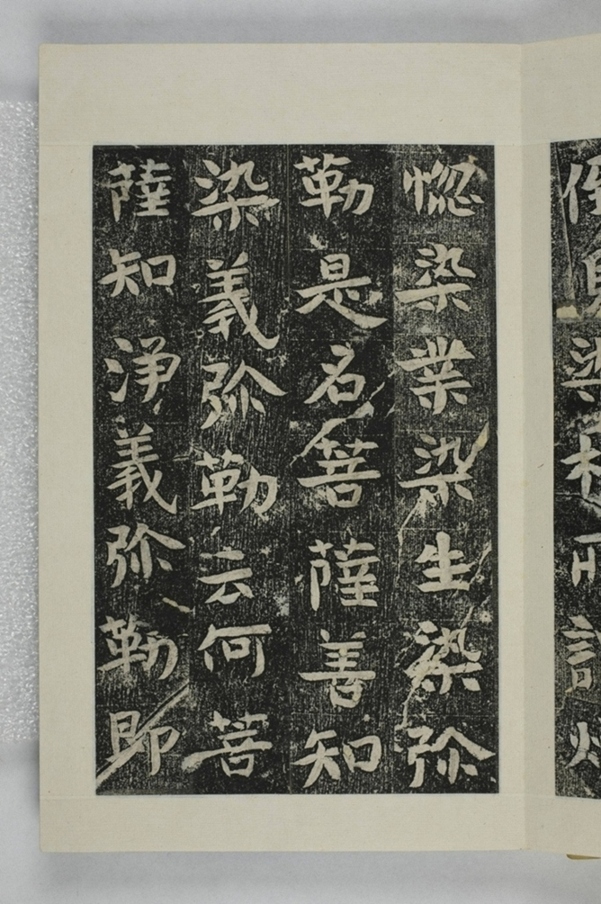 惱染業染生染弥
勒是名菩薩善知
染義弥勒云何菩
薩知淨義弥勒即